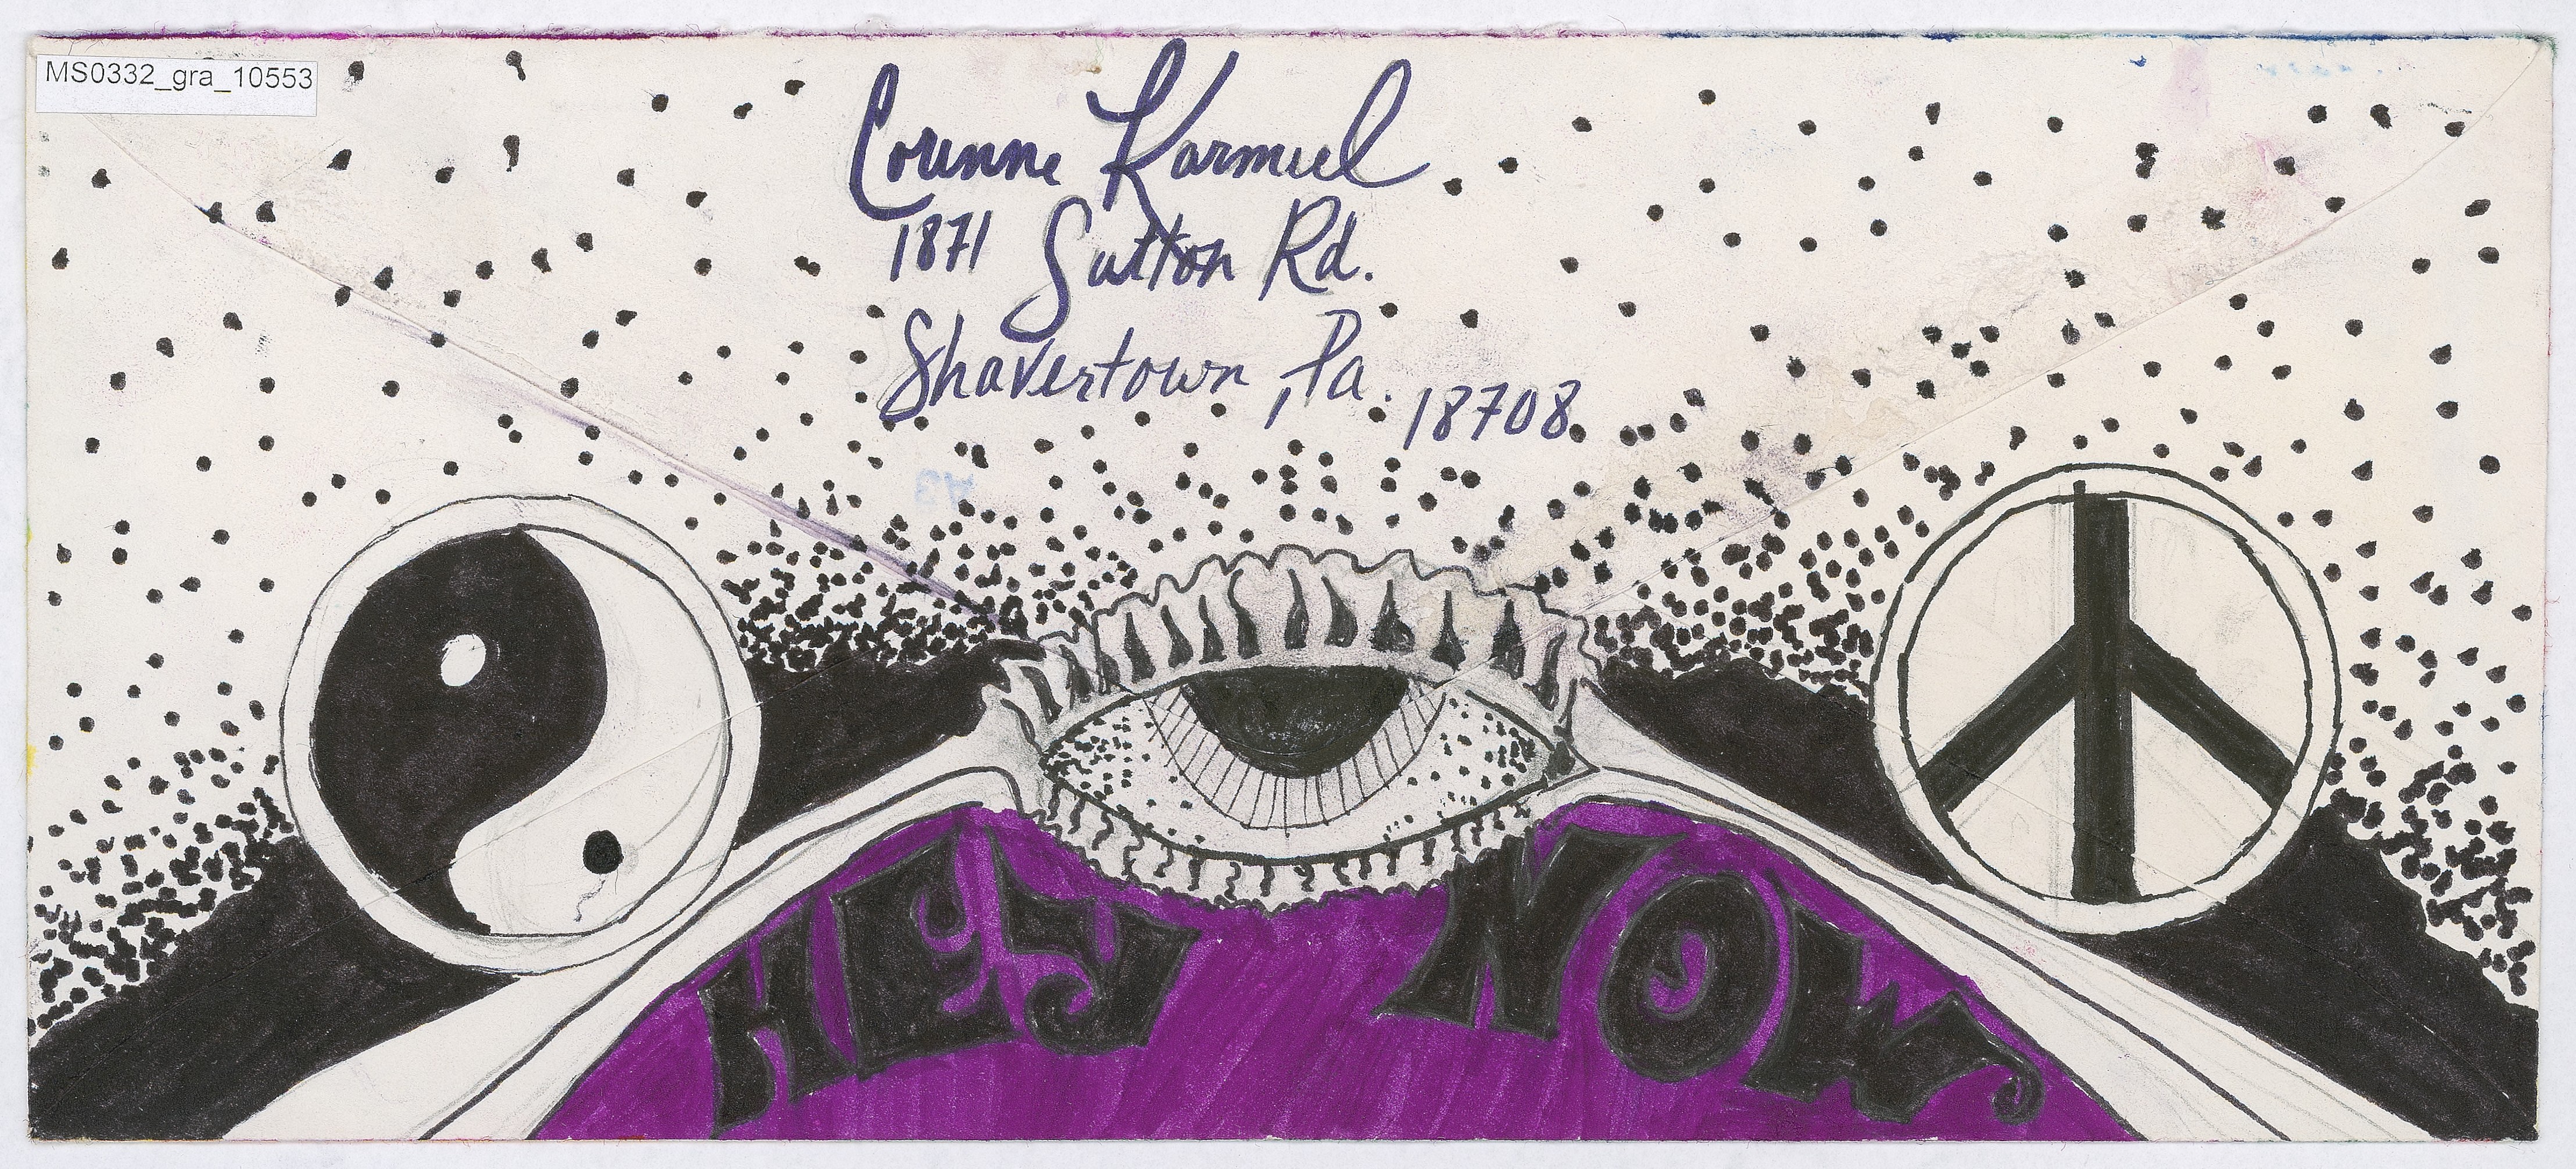 MS0332_gra_10553
Corinne Karmiel
1871 Sutton Rd.
Shavertown, Pa. 18708
HEY NOW